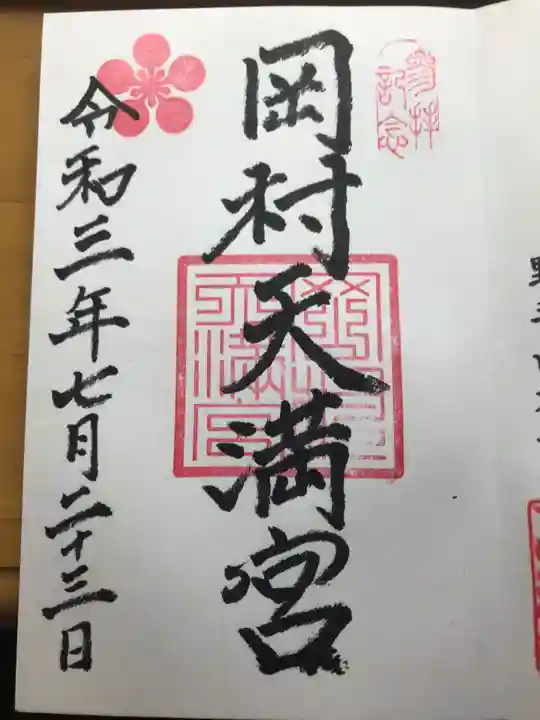 参拝
記念
岡村天満宮
令和三年七月二十三日